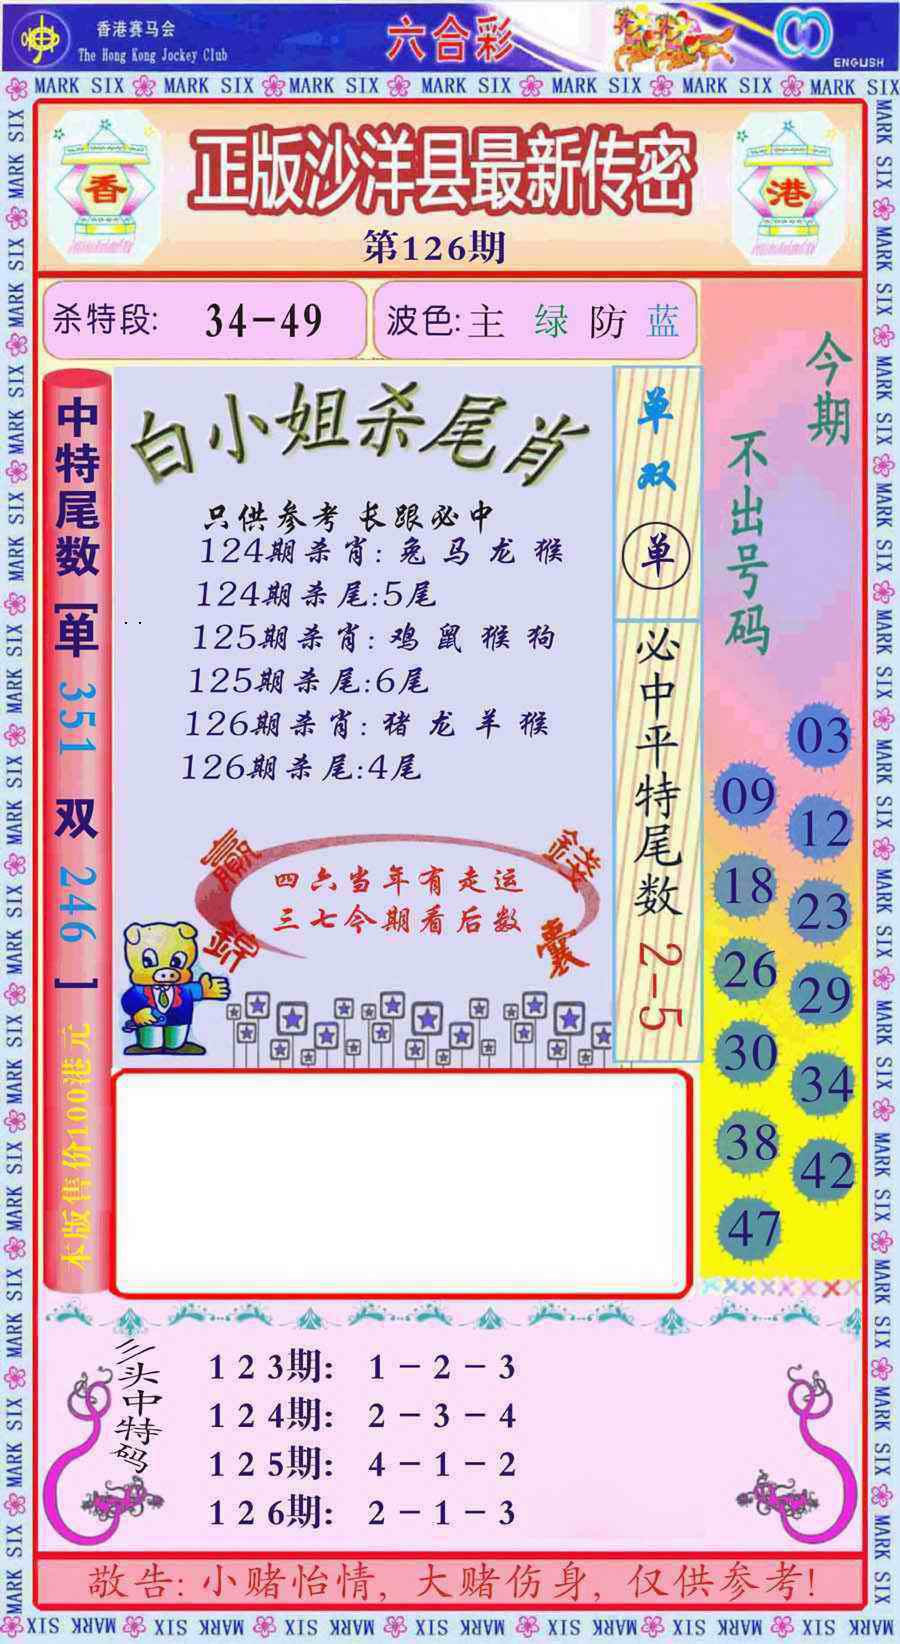 香港赛马会
The Hong Kong Jockey Club
六合彩
ENGLISH
MARK SIX MARK SIX MARK SIX MARK SIX MARK SIX MARK SIX MARK SIX
香
正版沙洋县最新传密
港
第126期
杀特段: 34-49
波色: 主 绿 防 蓝
今期
不出号码
03
09
12
18
23
26
29
30
34
38
42
47
中特尾数 [单 351 双 246 ]
本版售价100港元
白小姐杀尾肖
只供参考 长跟必中
124期杀肖: 兔 马 龙 猴
124期杀尾:5尾
125期杀肖: 鸡 鼠 猴 狗
125期杀尾:6尾
126期杀肖: 猪 龙 羊 猴
126期杀尾:4尾
单双
单
必中平特尾数 2-5
赢
錢
四六当年有走运
三七今期看后数
錦
囊
三头中特码
123期: 1-2-3
124期: 2-3-4
125期: 4-1-2
126期: 2-1-3
敬告: 小赌怡情, 大赌伤身, 仅供参考!